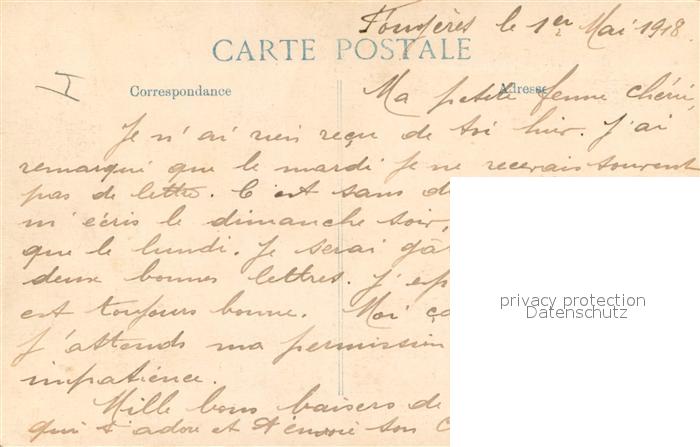 Fougères le 1er Mai 1918.
CARTE POSTALE
Correspondance
Adresse
Ma petite femme chérie
Je n'ai rien reçu de toi hier. J'ai
remarqué que le mardi je ne recevais souvent
pas de lettre. C'est sans
m'écris le dimanche soir,
que le lundi. Je serai
deux bonnes lettres.
est toujours bonne. Moi
J'attends ma permission
impatience.
Mille bons baisers de
qui t'adore et t'envoie son
privacy protection
Datenschutz